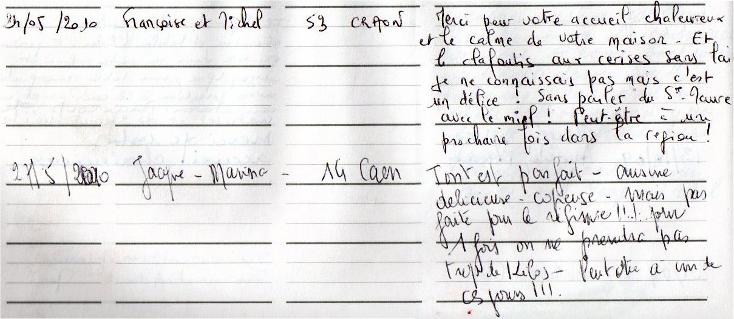 31/05/2010 Françoise et Michel 53 CRAON Merci pour votre accueil chaleureux
et le calme de votre maison. Et
le clafoutis aux cerises sans lait
je ne connaissais pas mais c'est
un délice ! Sans parler du Ste-Maure
avec le miel ! Peut-être à une
prochaine fois dans la région !
27/5/2010 Jacque - Marina - 14 Caen Tout est parfait - cuisine
délicieuse - copieuse - mais pas
faite pour le régime !!! pour
1 fois on ne prendra pas
trop de kilos - Peut être à un de
ces jours !!!